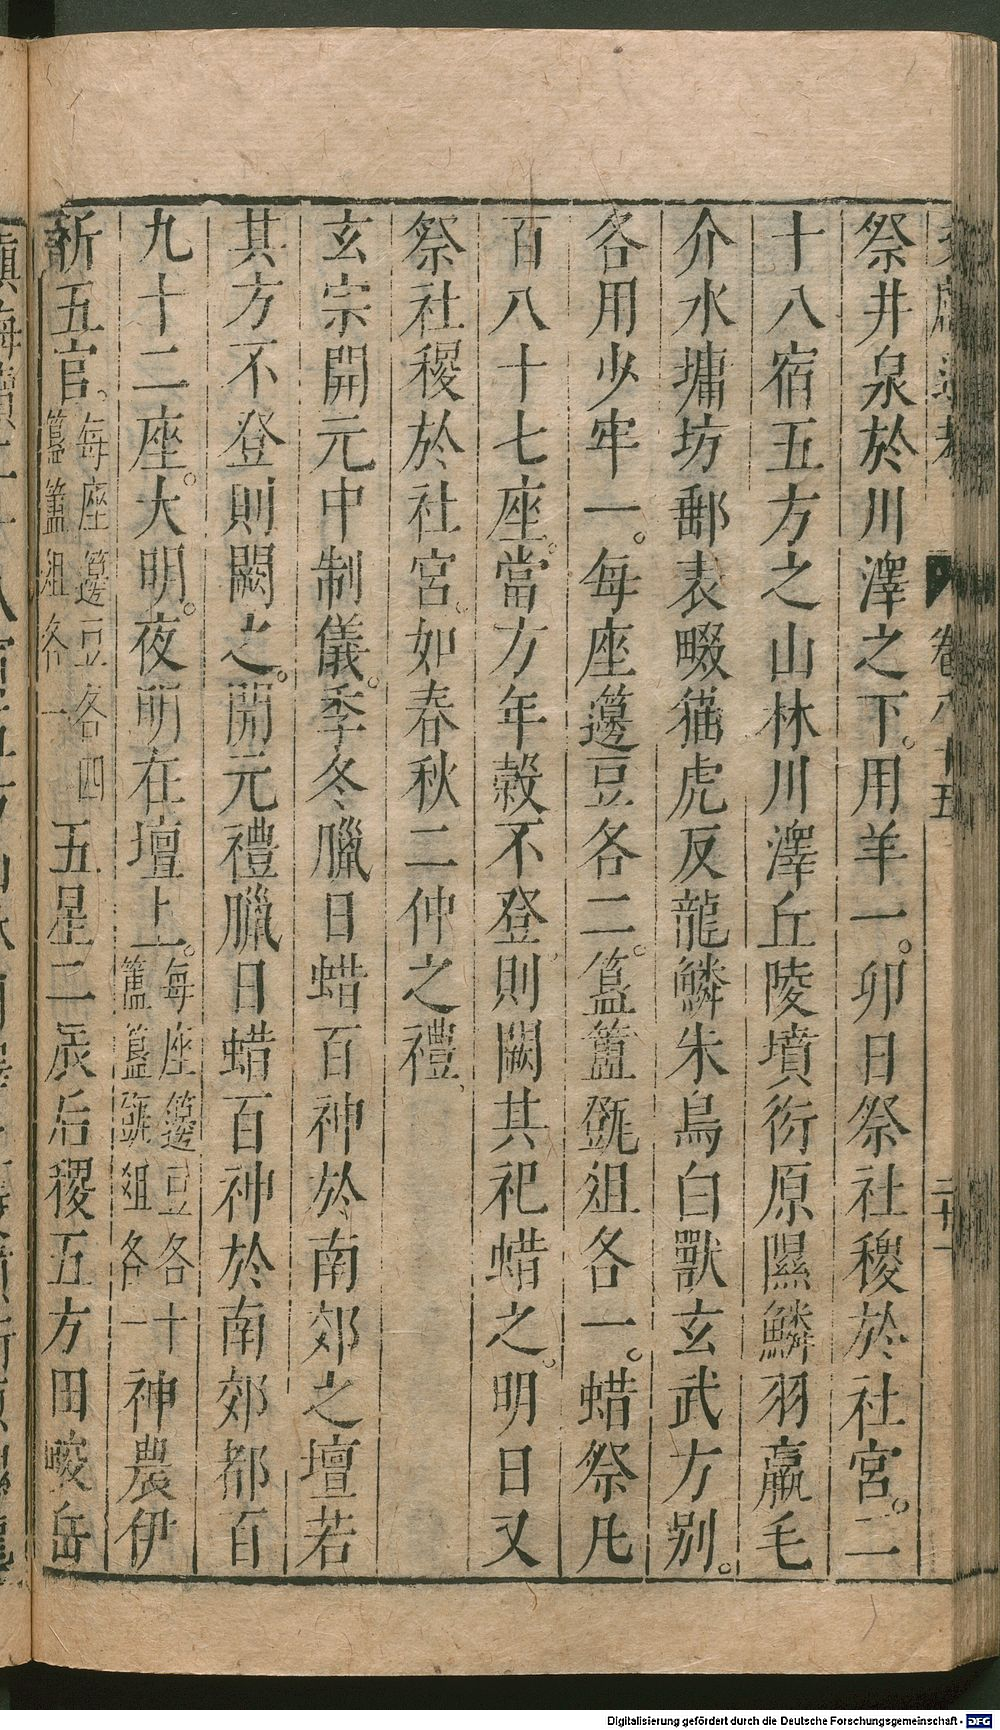 祭井泉於川澤之下。用羊一。卯日祭社稷於社宮。二
十八宿五方之山林川澤丘陵墳衍原隰鱗羽羸毛
介水墉坊郵表畷猫虎及龍鱗朱鳥白獸玄武方别。
各用少牢一。每座籩豆各二。簋簠甑俎各一。蜡祭凡
百八十七座。當方年穀不登。則闕其祀蜡之。明日又
祭社稷於社宮。如春秋二仲之禮。
玄宗開元中制儀。季冬臘日蜡百神於南郊之壇若
其方不登則闕之。開元禮臘日蜡百神於南郊都百
九十二座。大明。夜明在壇上。每座籩豆各十簠簋甑俎各一神農伊
祈五官。每座籩豆各四簋簠俎各一五星二辰后稷五方田畯岳
卷八十五
二十一
Digitalisierung gefördert durch die Deutsche Forschungsgemeinschaft - DFG